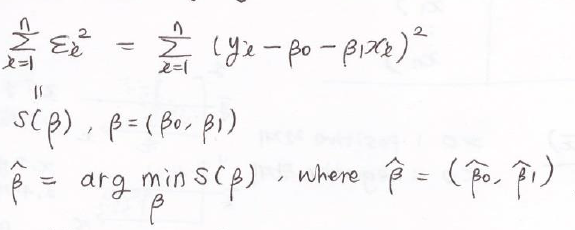 n Σ i=1 εi² = n Σ i=1 (yi - β0 - β1xi)²
=
S(β), β = (β0, β1)
β̂ = arg min β S(β), where β̂ = (β̂0, β̂1)